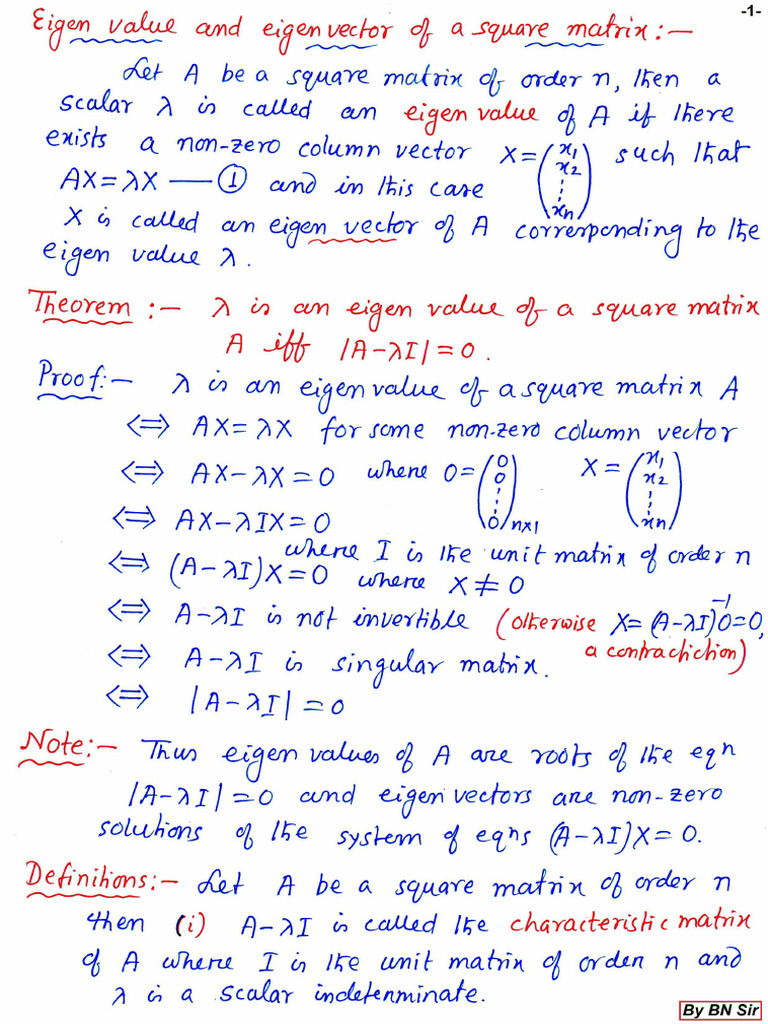 -1-
Eigen value and eigen vector of a square matrix:—
Let A be a square matrix of order n, then a
scalar λ is called an eigen value of A if there
exists a non-zero column vector X=(x1 x2 ⋮ xn) such that
AX=λX —— ① and in this case
X is called an eigen vector of A corresponding to the
eigen value λ.
Theorem:— λ is an eigen value of a square matrix
A iff |A-λI|=0.
Proof:— λ is an eigen value of a square matrix A
⇔ AX=λX for some non-zero column vector
⇔ AX-λX=0 where 0=(0 0 ⋮ 0)n×1 X=(x1 x2 ⋮ xn)
⇔ AX-λIX=0
where I is the unit matrix of order n
⇔ (A-λI)X=0 where X≠0
⇔ A-λI is not invertible (otherwise X=(A-λI)⁻¹0=0,
a contradiction)
⇔ A-λI is singular matrix.
⇔ |A-λI|=0
Note:— Thus eigen values of A are roots of the eqn
|A-λI|=0 and eigen vectors are non-zero
solutions of the system of eqns (A-λI)X=0.
Definitions:— Let A be a square matrix of order n
then (i) A-λI is called the characteristic matrix
of A where I is the unit matrix of order n and
λ is a scalar indeterminate.
By BN Sir